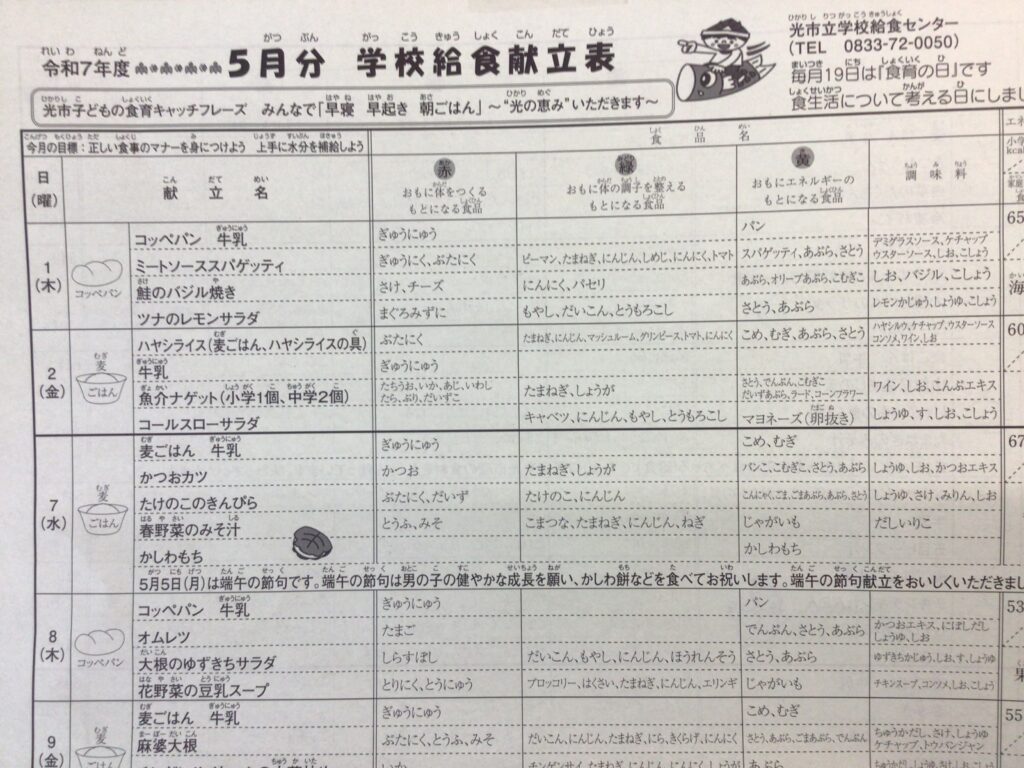 令和7年度 5月分 学校給食献立表
光市立学校給食センター
(TEL 0833-72-0050)
毎月19日は「食育の日」です
食生活について考える日にしま
光市子どもの食育キャッチフレーズ みんなで「早寝 早起き 朝ごはん」～"光の恵み"いただきます～
今月の目標：正しい食事のマナーを身につけよう 上手に水分を補給しよう
食品名
日(曜) 献立名
赤 おもに体をつくるもとになる食品
緑 おもに体の調子を整えるもとになる食品
黄 おもにエネルギーのもとになる食品
調味料
kcal
1(木) コッペパン
コッペパン 牛乳 ぎゅうにゅう パン デミグラスソース、ケチャップ ウスターソース、しお、こしょう
ミートソーススパゲッティ ぎゅうにく、ぶたにく ピーマン、たまねぎ、にんじん、しめじ、にんにく、トマト スパゲッティ、あぶら、さとう
鮭のバジル焼き さけ、チーズ にんにく、パセリ あぶら、オリーブあぶら、こむぎこ しお、バジル、こしょう
ツナのレモンサラダ まぐろみずに もやし、だいこん、とうもろこし さとう、あぶら レモンかじゅう、しょうゆ、こしょう
2(金) 麦ごはん
ハヤシライス(麦ごはん、ハヤシライスの具) ぶたにく たまねぎ、にんじん、マッシュルーム、グリンピース、トマト、にんにく こめ、むぎ、あぶら、さとう ハヤシルウ、ケチャップ、ウスターソース コンソメ、ワイン、しお
牛乳 ぎゅうにゅう
魚介ナゲット(小学1個、中学2個) たちうお、いか、あじ、いわし たら、ぶり、だいずこ たまねぎ、しょうが さとう、でんぷん、こむぎこ だいずあぶら、ラード、コーンフラワー ワイン、しお、こんぶエキス
コールスローサラダ キャベツ、にんじん、もやし、とうもろこし マヨネーズ(卵抜き) しょうゆ、す、しお、こしょう
7(水) 麦ごはん
麦ごはん 牛乳 ぎゅうにゅう こめ、むぎ
かつおカツ かつお たまねぎ、しょうが パンこ、こむぎこ、さとう、あぶら しょうゆ、しお、かつおエキス
たけのこのきんぴら ぶたにく、だいず たけのこ、にんじん こんにゃく、ごま、ごまあぶら、あぶら、さとう しょうゆ、さけ、みりん、しお
春野菜のみそ汁 とうふ、みそ こまつな、たまねぎ、にんじん、ねぎ じゃがいも だしいりこ
かしわもち かしわもち
5月5日(月)は端午の節句です。端午の節句は男の子の健やかな成長を願い、かしわ餅などを食べてお祝いします。端午の節句献立をおいしくいただきま
8(木) コッペパン
コッペパン 牛乳 ぎゅうにゅう パン
オムレツ たまご でんぷん、さとう、あぶら かつおエキス、にぼしだし しょうゆ、しお
大根のゆずきちサラダ しらすぼし だいこん、もやし、にんじん、ほうれんそう さとう、あぶら ゆずきちかじゅう、しお、す、しょうゆ
花野菜の豆乳スープ とりにく、とうにゅう ブロッコリー、はくさい、たまねぎ、にんじん、エリンギ じゃがいも チキンスープ、コンソメ、しお、こしょう
9(金) 麦ごはん
麦ごはん 牛乳 ぎゅうにゅう こめ、むぎ
麻婆大根 ぶたにく、とうふ、みそ だいこん、にんじん、たまねぎ、にら、きくらげ、にんにく さとう、あぶら、ごまあぶら、でんぷん ちゅうかだし、さけ、しょうゆ ケチャップ、トウバンジャン